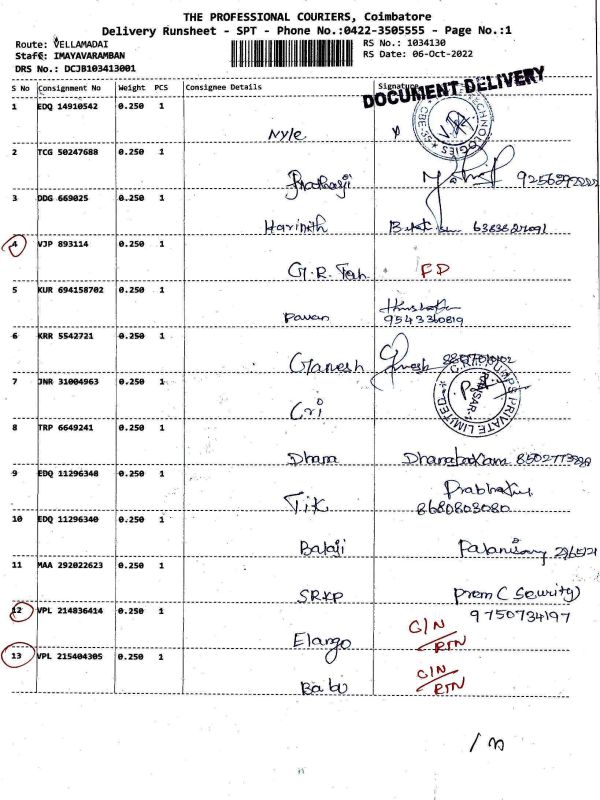 THE PROFESSIONAL COURIERS, Coimbatore
Delivery Runsheet - SPT - Phone No.:0422-3505555 - Page No.:1
Route: VELLAMADAI RS No.: 1034130
Staff: IMAYAVARAMBAN RS Date: 06-Oct-2022
DRS No.: DCJB103413001
S No Consignment No Weight PCS Consignee Details Signature
DOCUMENT DELIVERY
1 EDQ 14910542 0.250 1
Nyle
2 TCG 50247688 0.250 1
3 DDG 669025 0.250 1
Harinith
4 VJP 893114 0.250 1
G.R. FD
5 KUR 694158702 0.250 1
Pavan 9543360819
6 KRR 5542721 0.250 1
Ganesh
7 JNR 31004963 0.250 1
Cri
PUMPS PRIVATE LIMITED
8 TRP 6649241 0.250 1
Dhana
9 EDQ 11296348 0.250 1
Prabhaku
Tik 8680803080
10 EDQ 11296340 0.250 1
Balaji
11 MAA 292022623 0.250 1
SRKP Prem (Security)
12 VPL 214836414 0.250 1 9750734197
Elango C/N
RTN
13 VPL 215404305 0.250 1
Babu C/N
RTN